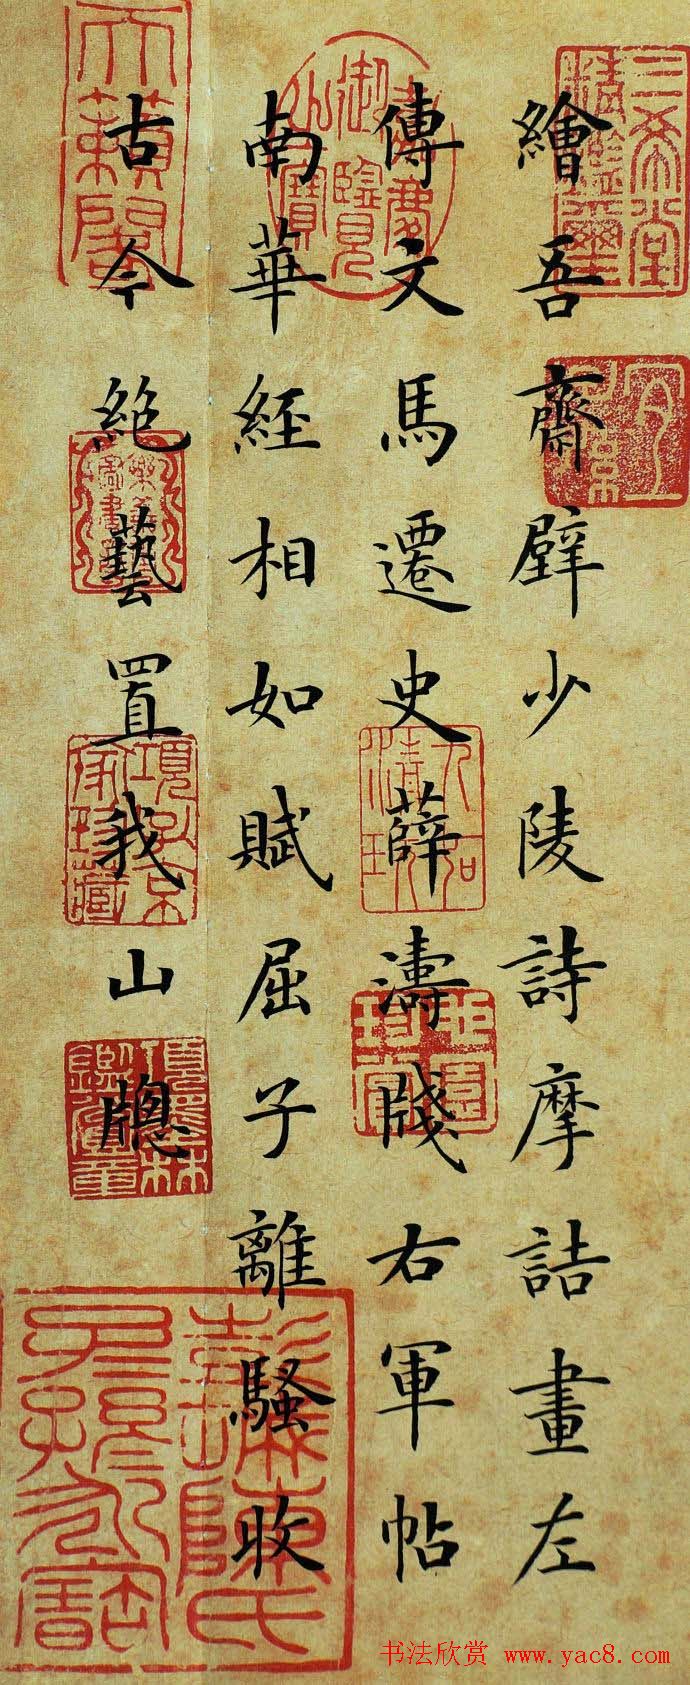 繪吾齋壁少陵詩摩詰畫左
傳文馬遷史薛濤牋右軍帖
南華經相如賦屈子離騷收
古今絕藝置我山牕
三希堂精鑑璽
宜子孫
天籟閣
书法欣赏 www.yac8.com